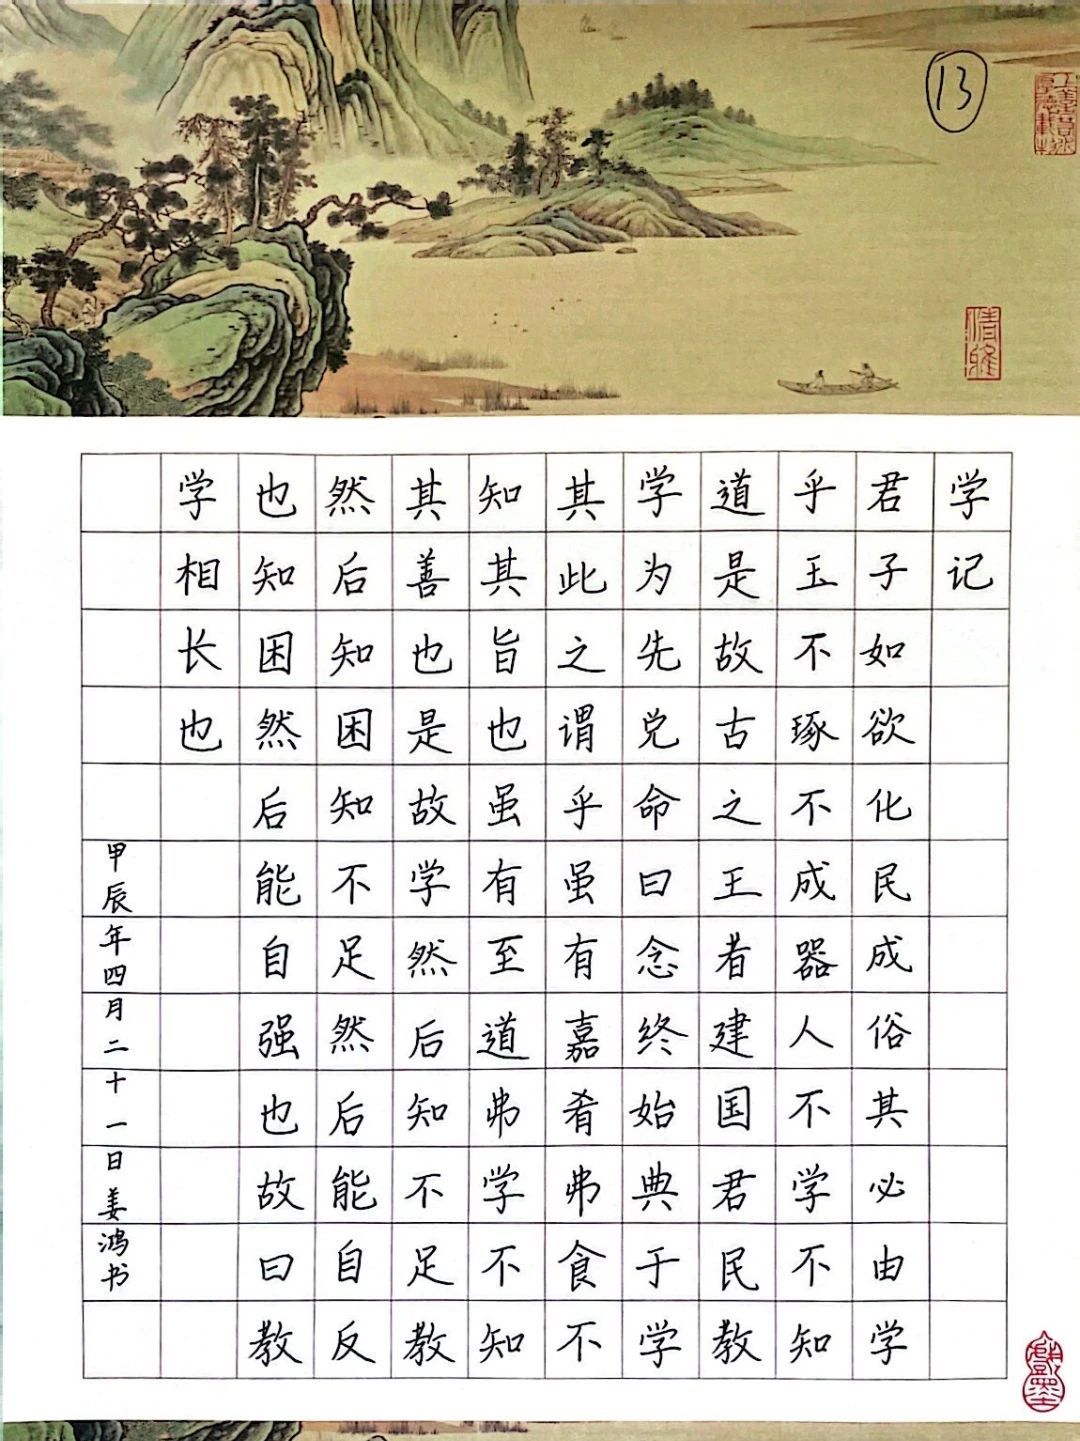 13
学记
君子如欲化民成俗其必由学
乎玉不琢不成器人不学不知
道是故古之王者建国君民教
学为先兑命曰念终始典于学
其此之谓乎虽有嘉肴弗食不
知其旨也虽有至道弗学不知
其善也是故学然后知不足教
然后知困知不足然后能自反
也知困然后能自强也故曰教
学相长也
甲辰年四月二十一日姜鸿书
清雅